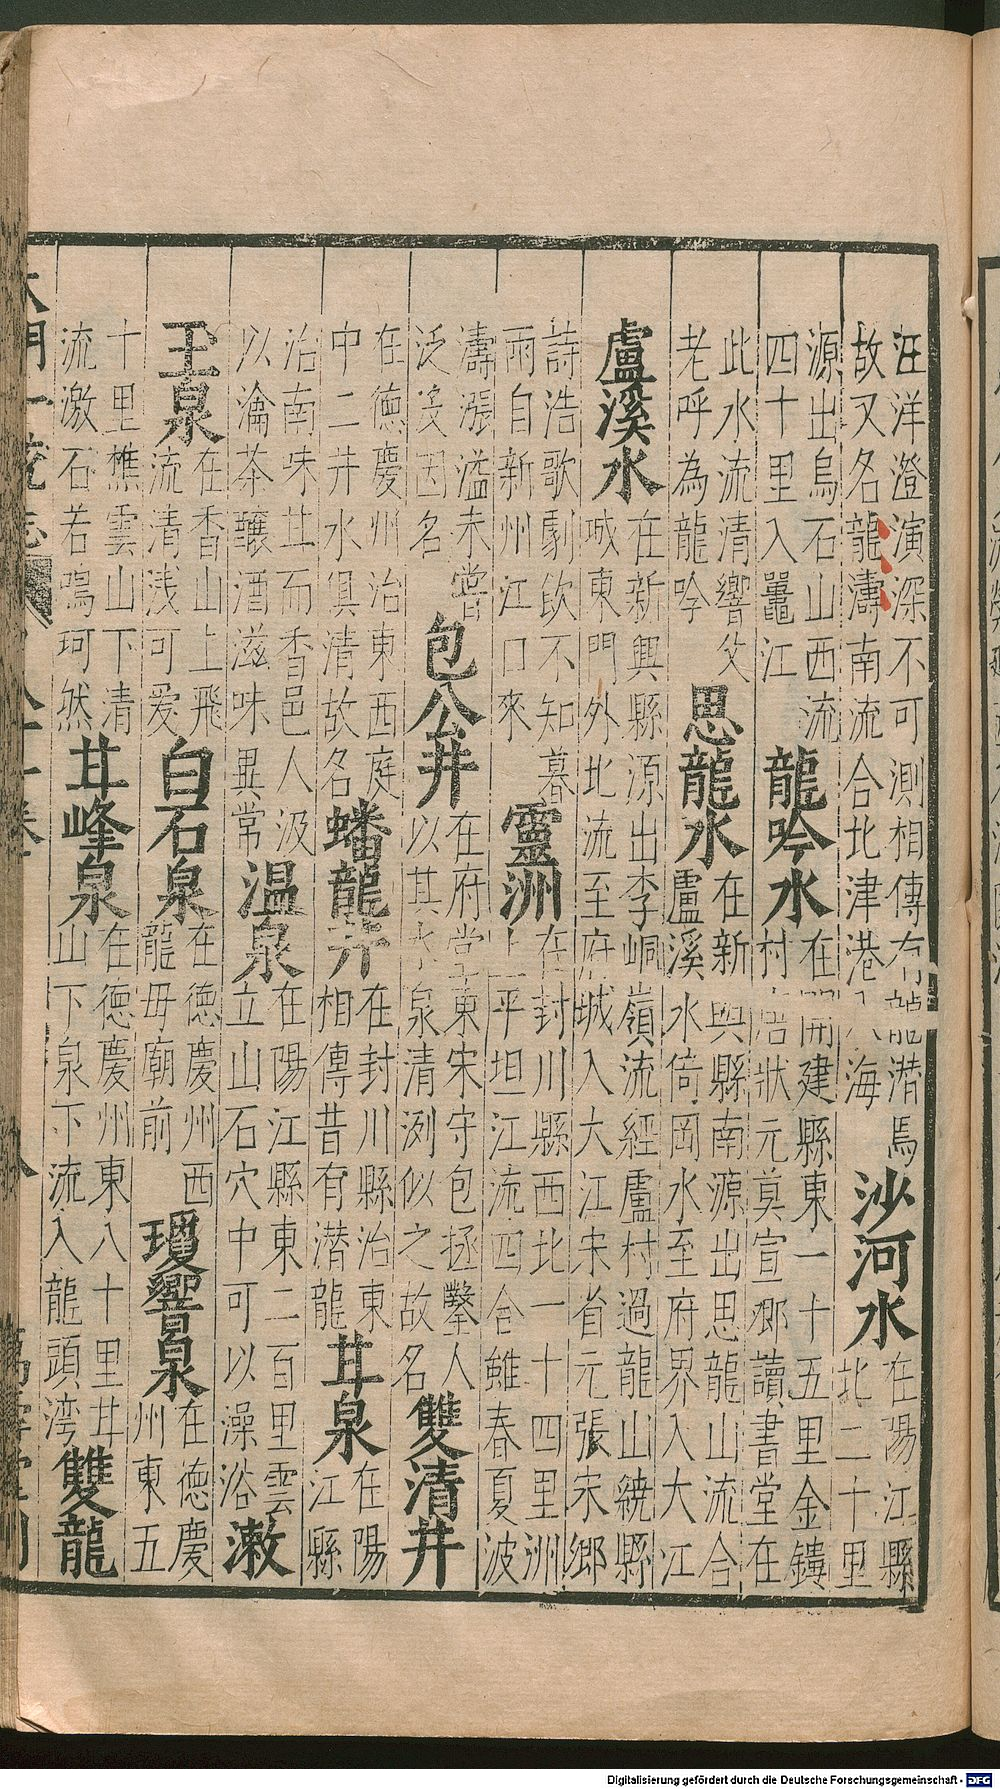 汪洋澄演深不可測相傳有龍潛焉
故又名龍濤南流合北津港入海
沙河水
在陽江縣
北二十里
源出烏石山西流
四十里入鼉江
龍吟水
在開建縣東一十五里金鏤
村唐狀元莫宣卿讀書堂在
此水流清響父
老呼為龍吟
思龍水
在新興縣南源出思龍山流合
盧溪水倚岡水至府界入大江
盧溪水
在新興縣源出李峒嶺流經盧村過龍山繞縣
城東門外北流至府城入大江宋省元張宋鄉
詩浩歌劇飲不知暮
雨自新州江口來
靈洲
在封川縣西北一十四里洲
上平坦江流四合雖春夏波
濤漲溢未嘗
泛沒因名
包公井
在府堂東宋守包拯鑿人
以其水泉清洌似之故名
雙清井
在德慶州治東西庭
中二井水俱清故名
蟠龍井
在封川縣治東
相傳昔有潛龍
甘泉
在陽
江縣
治南味甘而香邑人汲
以瀹茶釀酒滋味異常
温泉
在陽江縣東二百里雲
立山石穴中可以澡浴
漱
玉泉
在香山上飛
流清浅可爱
白石泉
在德慶州西
龍母廟前
瓊響泉
在德慶
州東五
十里樵雲山下清
流激石若鳴珂然
甘峰泉
在德慶州東八十里甘
山下泉下流入龍頭湾
雙龍
Digitalisierung gefördert durch die Deutsche Forschungsgemeinschaft - DFG